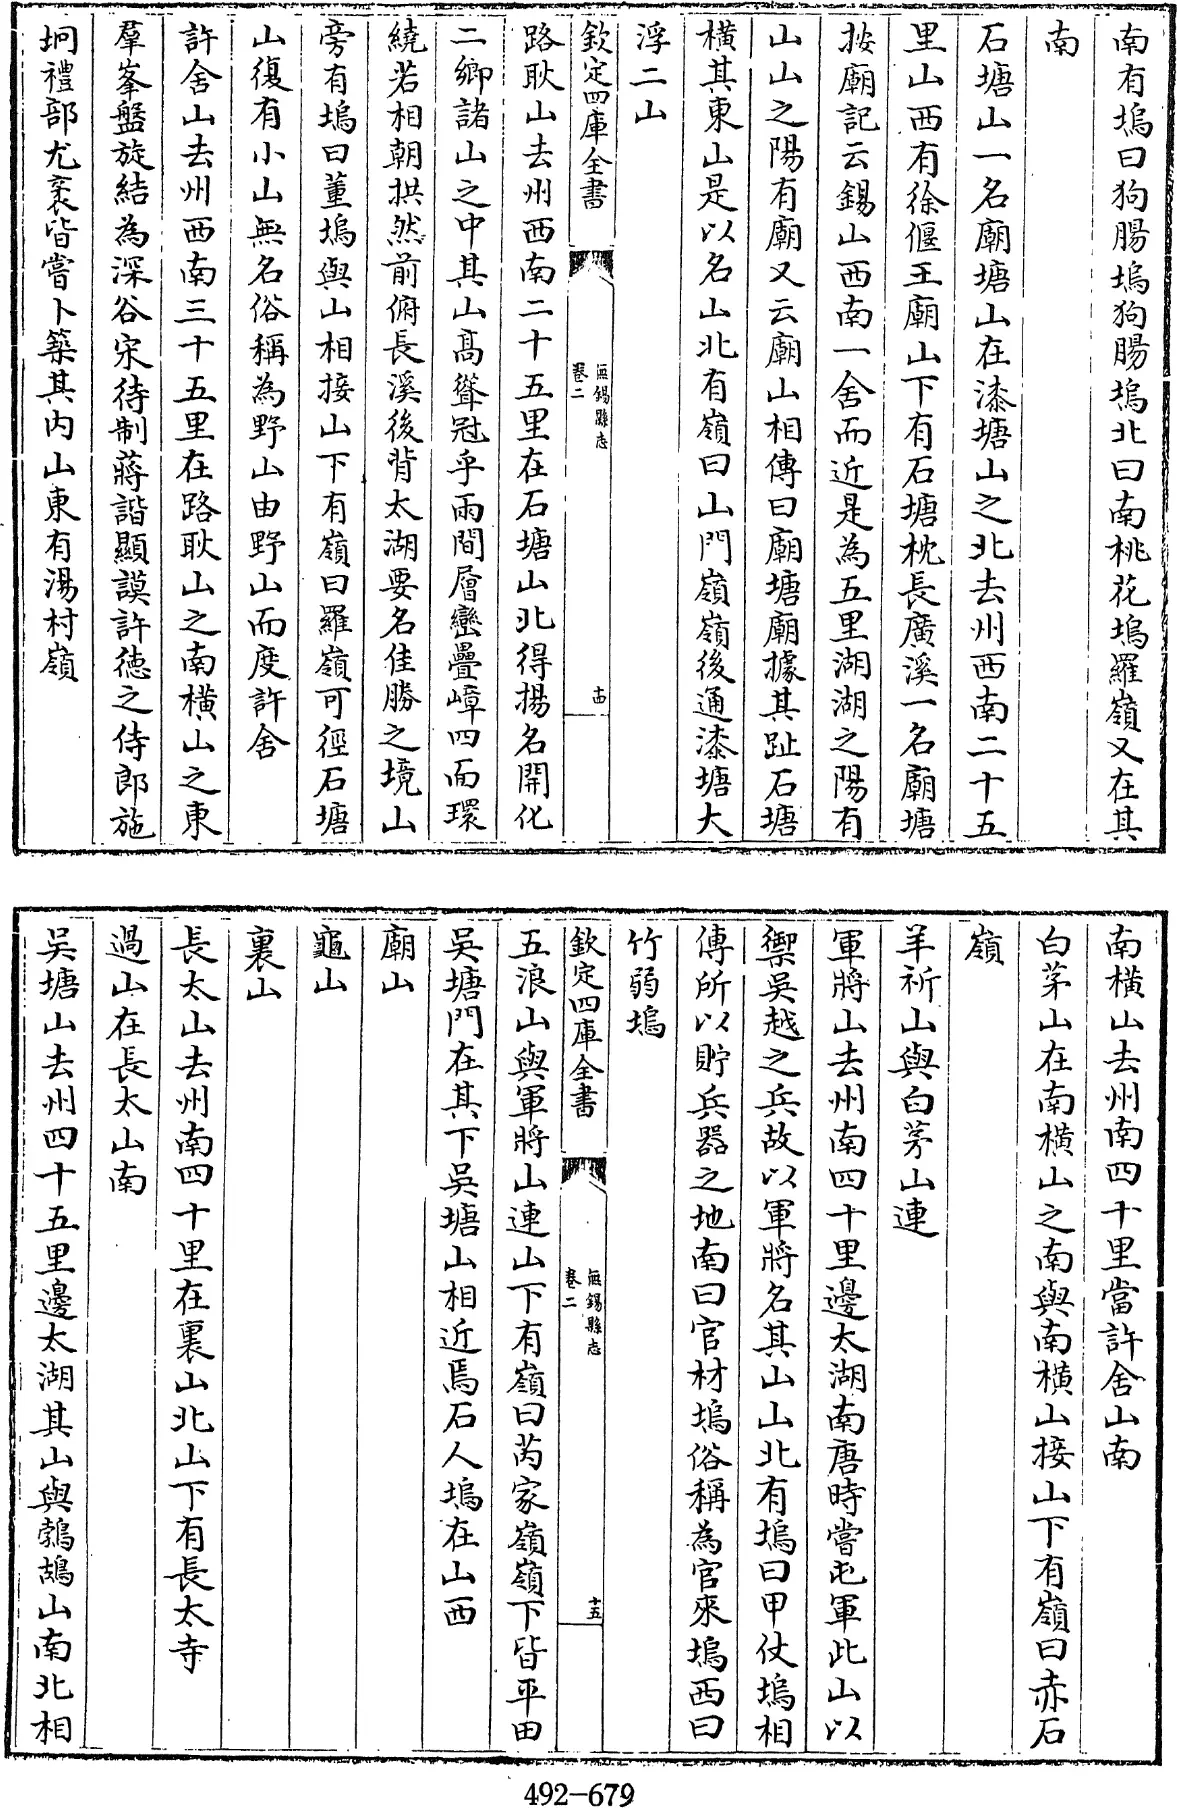 南有塢曰狗腸塢狗腸塢北曰南桃花塢羅嶺又在其
南
石塘山一名廟塘山在漆塘山之北去州西南二十五
里山西有徐偃王廟山下有石塘枕長廣溪一名廟塘
按廟記云錫山西南一舍而近是為五里湖湖之陽有
山山之陽有廟又云廟山相傳曰廟塘廟據其趾石塘
橫其東山是以名山北有嶺曰山門嶺嶺後通漆塘大
浮二山
欽定四庫全書
無錫縣志
卷二
十四
路耿山去州西南二十五里在石塘山北得揚名開化
二鄉諸山之中其山髙聳冠乎兩間層巒疊嶂四面環
繞若相朝拱然前俯長溪後背太湖要名佳勝之境山
旁有塢曰董塢與山相接山下有嶺曰羅嶺可徑石塘
山復有小山無名俗稱為野山由野山而度許舍
許舍山去州西南三十五里在路耿山之南橫山之東
羣峯盤旋結為深谷宋待制蔣諧顯謨許徳之侍郎施
坰禮部尤袤皆嘗卜築其内山東有湯村嶺
南橫山去州南四十里當許舍山南
白茅山在南橫山之南與南橫山接山下有嶺曰赤石
嶺
羊祈山與白茅山連
軍將山去州南四十里邊太湖南唐時嘗屯軍此山以
禦吳越之兵故以軍將名其山山北有塢曰甲仗塢相
傳所以貯兵器之地南曰官材塢俗稱為官來塢西曰
竹弱塢
欽定四庫全書
無錫縣志
卷二
十五
五浪山與軍將山連山下有嶺曰芮家嶺嶺下皆平田
吳塘門在其下吳塘山相近焉石人塢在山西
廟山
龜山
裏山
長太山去州南四十里在裏山北山下有長太寺
過山在長太山南
吳塘山去州四十五里邊太湖其山與鷻鴣山南北相
492-679